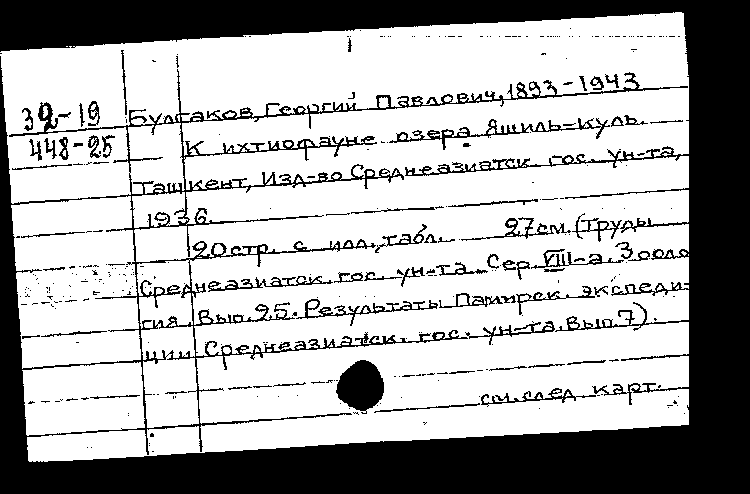 32-19 Булгаков, Георгий Павлович, 1893-1943
448-25 К ихтиофауне озера Яшиль-Куль.
Ташкент, Изд-во Среднеазиатск. гос. ун-та,
1936.
20 стр. с илл., табл. 27 см. (Труды
Среднеазиатск. гос. ун-та. Сер. VIII-а. Зооло
гия. Вып. 25. Результаты Памирск. экспеди-
ции Среднеазиатск. гос. ун-та. Вып. 7).
см. след. карт.